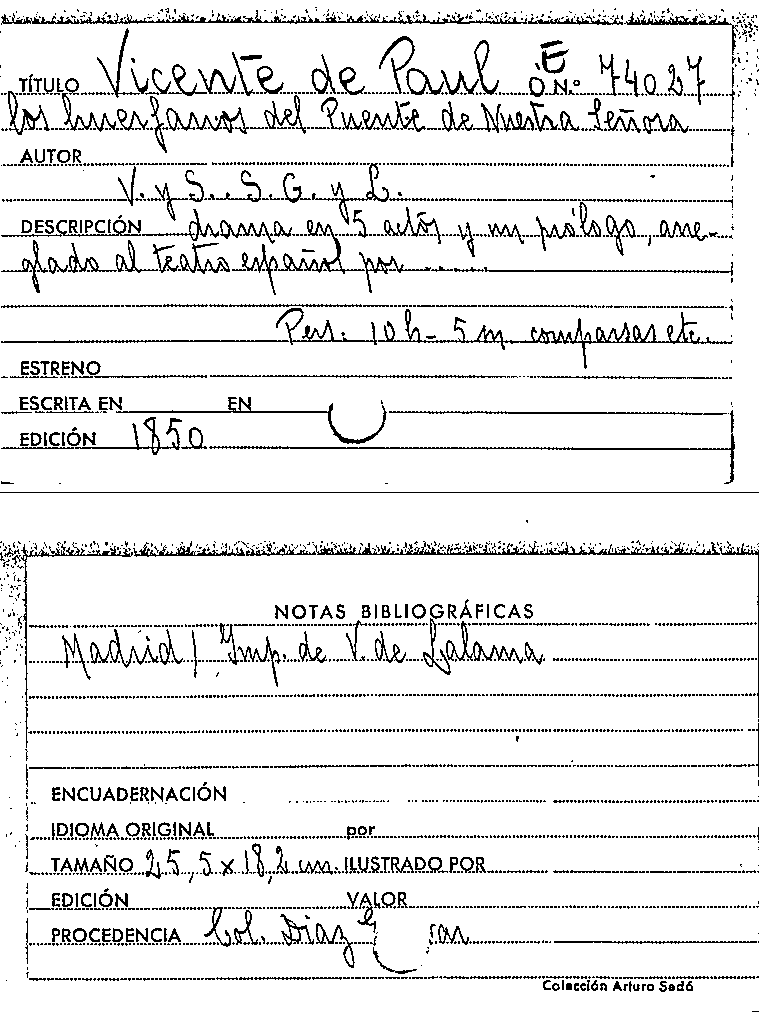 TÍTULO Vicente de Paul E O Nº 74027
los huerfanos del Puente de Nuestra Señora
AUTOR
V. y S.. S. G. y L.
DESCRIPCIÓN drama en 5 actos y un prólogo, arre-
glado al teatro español por ......
Pers. 10 h - 5 m. comparsas etc.
ESTRENO
ESCRITA EN EN
EDICIÓN 1850
NOTAS BIBLIOGRÁFICAS
Madrid / Imp. de V. de Lalama
ENCUADERNACIÓN
IDIOMA ORIGINAL por
TAMAÑO 25,5 x 18,2 cm. ILUSTRADO POR
EDICIÓN VALOR
PROCEDENCIA Col. Diaz
Colección Arturo Sedó